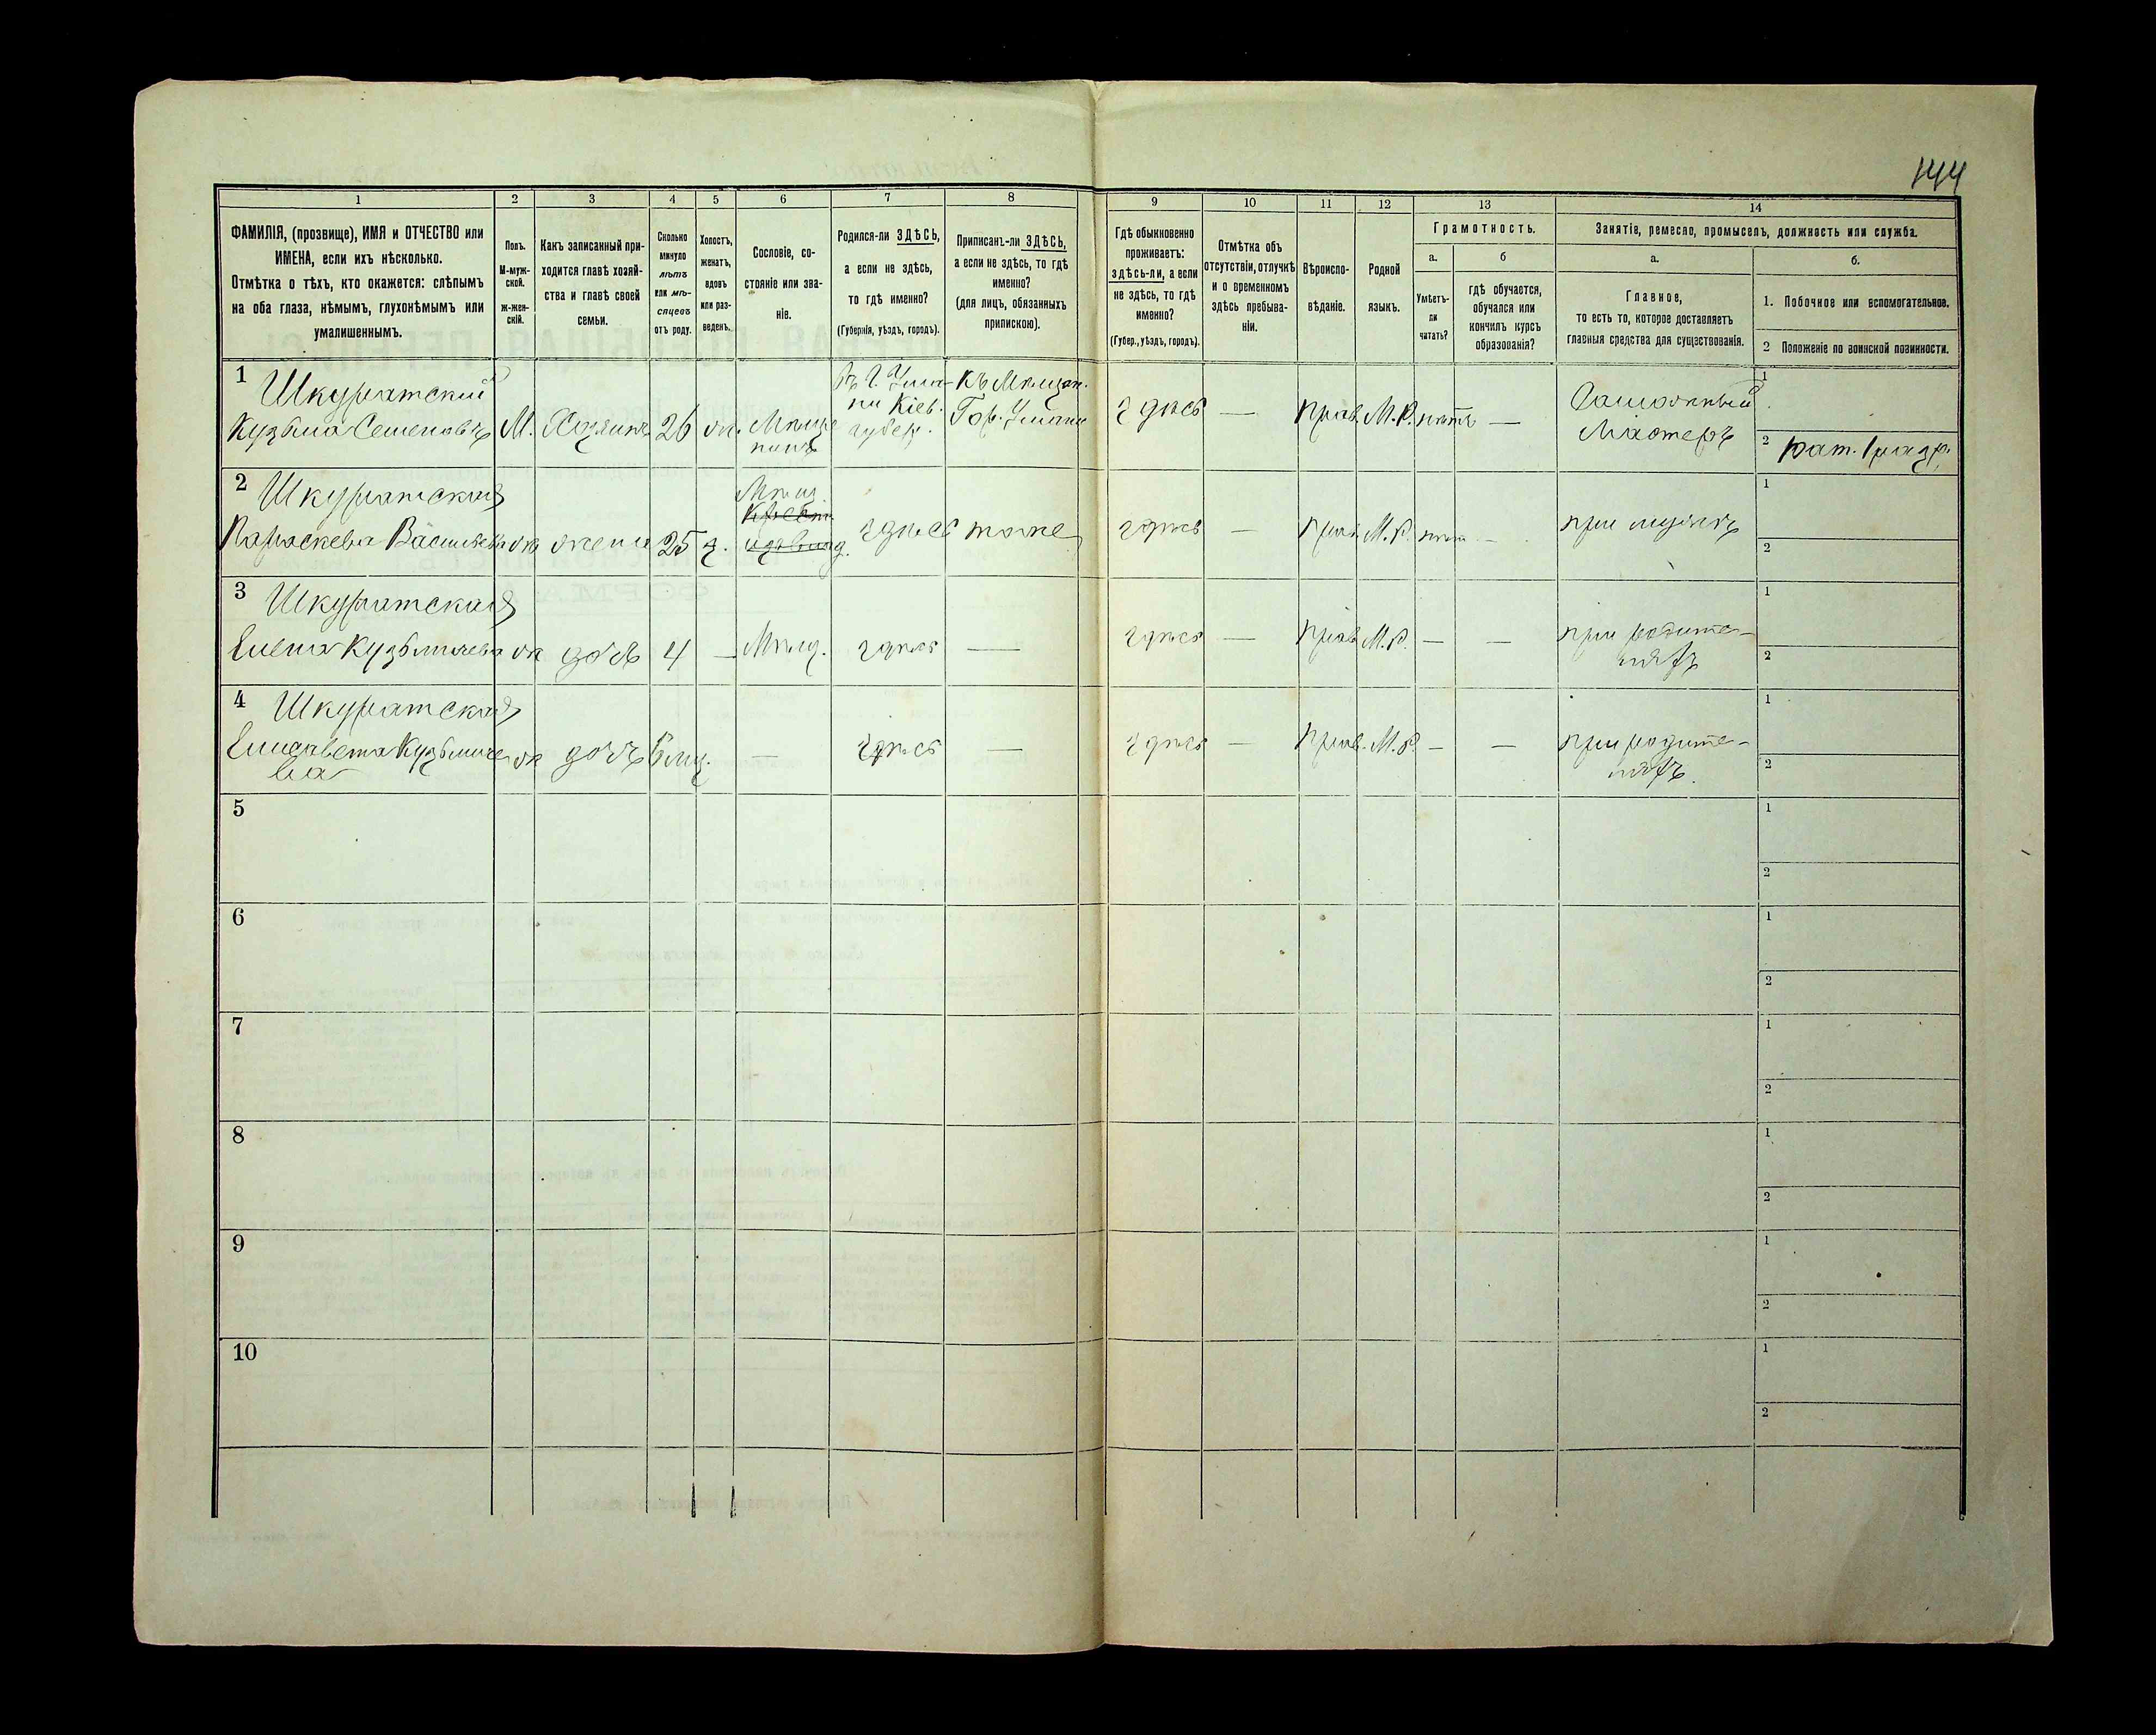 144
1
2
3
4
5
6
7
8
9
10
11
12
13
14
ФАМИЛІЯ, (прозвище), ИМЯ и ОТЧЕСТВО или
ИМЕНА, если ихъ нѣсколько.
Отмѣтка о тѣхъ, кто окажется: слѣпымъ
на оба глаза, нѣмымъ, глухонѣмымъ или
умалишеннымъ.
Полъ.
М-муж-
ской.
Ж-жен-
скій.
Какъ записанный при-
ходится главѣ хозяй-
ства и главѣ своей
семьи.
Сколько
минуло
лѣтъ
или мѣ-
сяцевъ
отъ роду.
Холостъ,
женатъ,
вдовъ
или раз-
веденъ.
Сословіе, со-
стояніе или зва-
ніе.
Родился-ли ЗДѢСЬ,
а если не здѣсь,
то гдѣ именно?
(Губернія, уѣздъ, городъ).
Приписанъ-ли ЗДѢСЬ,
а если не здѣсь, то гдѣ
именно?
(для лицъ, обязанныхъ
припискою).
Гдѣ обыкновенно
проживаетъ:
здѣсь-ли, а если
не здѣсь, то гдѣ
именно?
(Губер., уѣздъ, городъ).
Отмѣтка объ
отсутствіи, отлучкѣ
и о временномъ
здѣсь пребыва-
ніи.
Вѣроиспо-
вѣданіе.
Родной
языкъ.
Грамотность.
а.
Умѣетъ-
ли
читать?
б
гдѣ обучается,
обучался или
кончилъ курсъ
образованія?
Занятіе, ремесло, промыселъ, должность или служба.
а.
Главное,
то есть то, которое доставляетъ
главныя средства для существованія.
б.
1. Побочное или вспомогательное.
2 Положеніе по воинской повинности.
1 Шкуратскій
Кузьма Семеновъ М. Хозяинъ 26 ж. Мѣща-
нинъ
въ г. Ума-
ни Кіев.
губер.
Къ Мѣщан.
Гор. Умани
здѣсь — прав. М.Р. нѣтъ —
Мастеръ
1
2 рат. 1 разр.
2 Шкуратская
Параскева Васильева ж жена 25 з.
Мѣщ.
здѣсь тоже здѣсь — прав. М.Р. — при мужѣ
1
2
3 Шкуратская
Елена Кузьмичева ж дочь 4 — Мѣщ. здѣсь — здѣсь — прав. М.Р. — — при родите-
ляхъ
1
2
4 Шкуратская
Елисавета Кузьмиче-
ва ж дочь 6 мц. — здѣсь — здѣсь — прав. М.Р. — — при родите-
ляхъ.
1
2
5
1
2
6
1
2
7
1
2
8
1
2
9
1
2
10
1
2